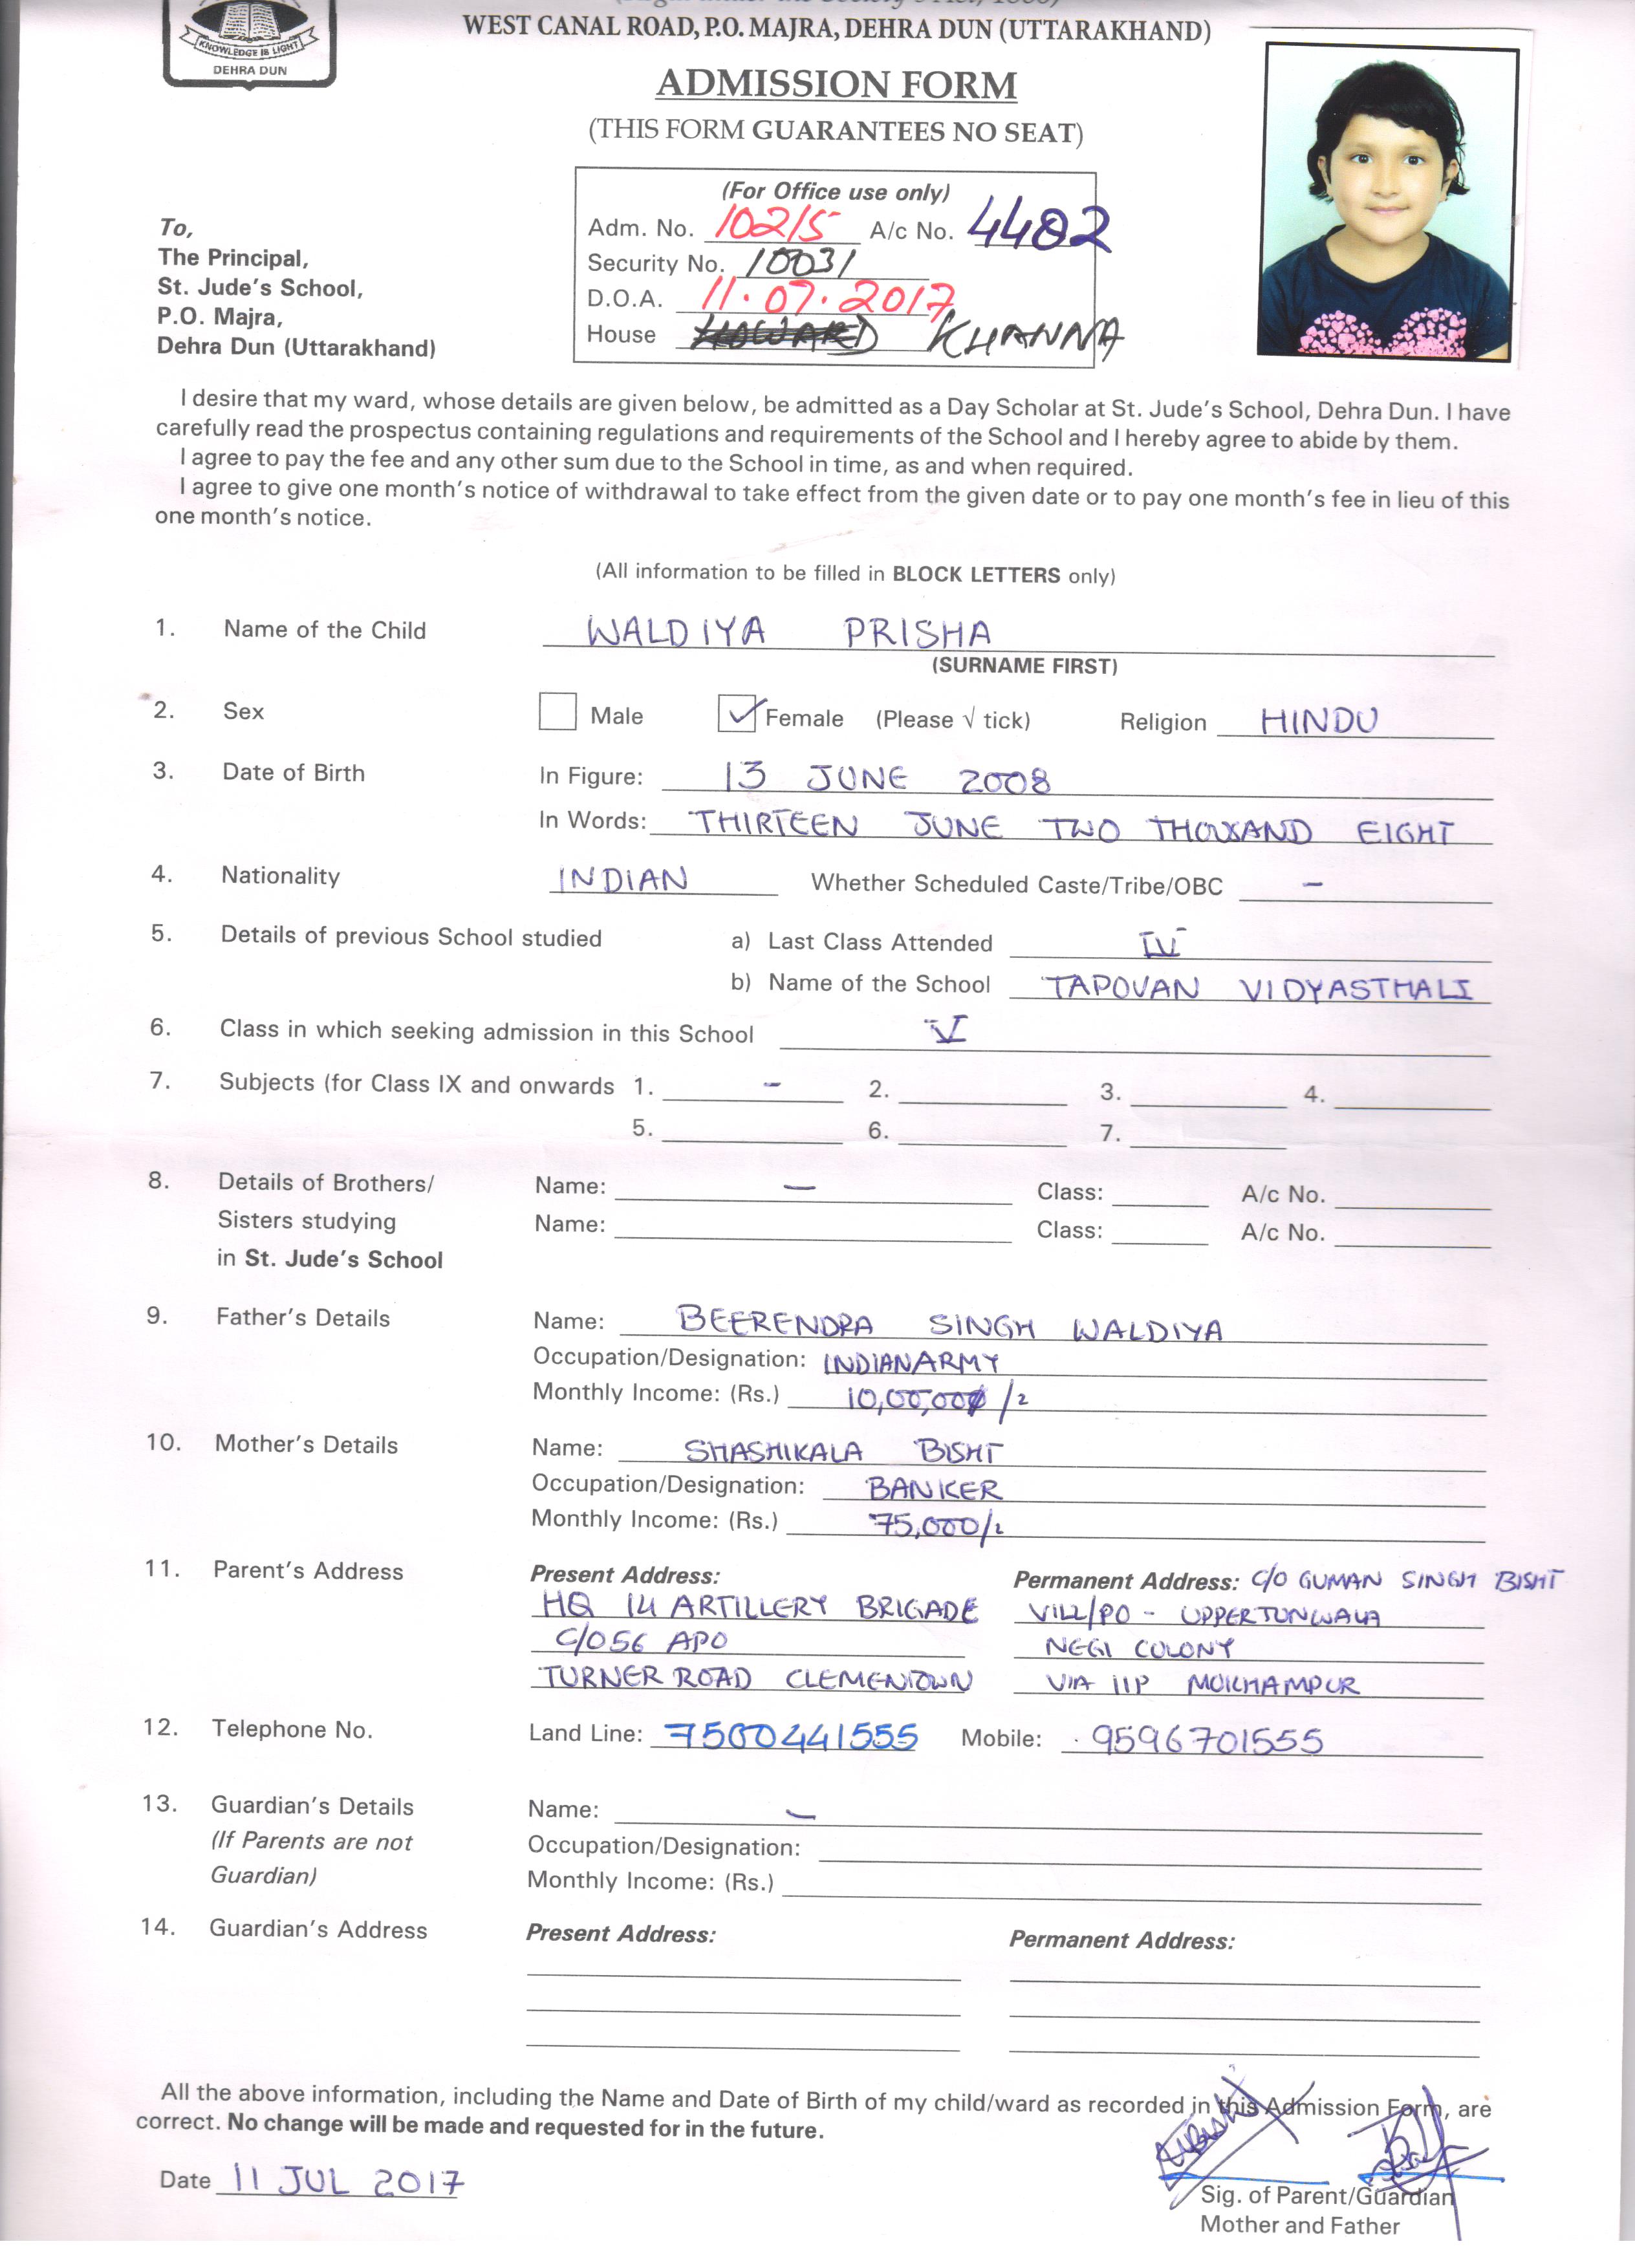 KNOWLEDGE IS LIGHT
DEHRA DUN
WEST CANAL ROAD, P.O. MAJRA, DEHRA DUN (UTTARAKHAND)
ADMISSION FORM
(THIS FORM GUARANTEES NO SEAT)
(For Office use only)
Adm. No. 10215 A/c No. 4402
Security No. 10031
D.O.A. 11.07.2017
House HOWARD KHANNA
To,
The Principal,
St. Jude's School,
P.O. Majra,
Dehra Dun (Uttarakhand)
I desire that my ward, whose details are given below, be admitted as a Day Scholar at St. Jude's School, Dehra Dun. I have
carefully read the prospectus containing regulations and requirements of the School and I hereby agree to abide by them.
I agree to pay the fee and any other sum due to the School in time, as and when required.
I agree to give one month's notice of withdrawal to take effect from the given date or to pay one month's fee in lieu of this
one month's notice.
(All information to be filled in BLOCK LETTERS only)
1. Name of the Child WALDIYA PRISHA
(SURNAME FIRST)
2. Sex Male ✓ Female (Please √ tick) Religion HINDU
3. Date of Birth In Figure: 13 JUNE 2008
In Words: THIRTEEN JUNE TWO THOUSAND EIGHT
4. Nationality INDIAN Whether Scheduled Caste/Tribe/OBC -
5. Details of previous School studied a) Last Class Attended IV
b) Name of the School TAPOVAN VIDYASTHALI
6. Class in which seeking admission in this School V
7. Subjects (for Class IX and onwards 1. - 2. 3. 4.
5. 6. 7.
8. Details of Brothers/ Name: - Class: A/c No.
Sisters studying Name: Class: A/c No.
in St. Jude's School
9. Father's Details Name: BEERENDRA SINGH WALDIYA
Occupation/Designation: INDIAN ARMY
Monthly Income: (Rs.) 10,00,000/-
10. Mother's Details Name: SHASHIKALA BISHT
Occupation/Designation: BANKER
Monthly Income: (Rs.) 75,000/-
11. Parent's Address Present Address: Permanent Address: C/O GUMAN SINGH BISHT
HQ 14 ARTILLERY BRIGADE VILL/PO - UPPERTUNWALA
C/O 56 APO NEGI COLONY
TURNER ROAD CLEMENTOWN VIA IIP MOKHAMPUR
12. Telephone No. Land Line: 7500441555 Mobile: 9596701555
13. Guardian's Details Name: -
(If Parents are not Occupation/Designation:
Guardian) Monthly Income: (Rs.)
14. Guardian's Address Present Address: Permanent Address:
All the above information, including the Name and Date of Birth of my child/ward as recorded in this Admission Form, are
correct. No change will be made and requested for in the future.
Date 11 JUL 2017
Sig. of Parent/Guardian
Mother and Father